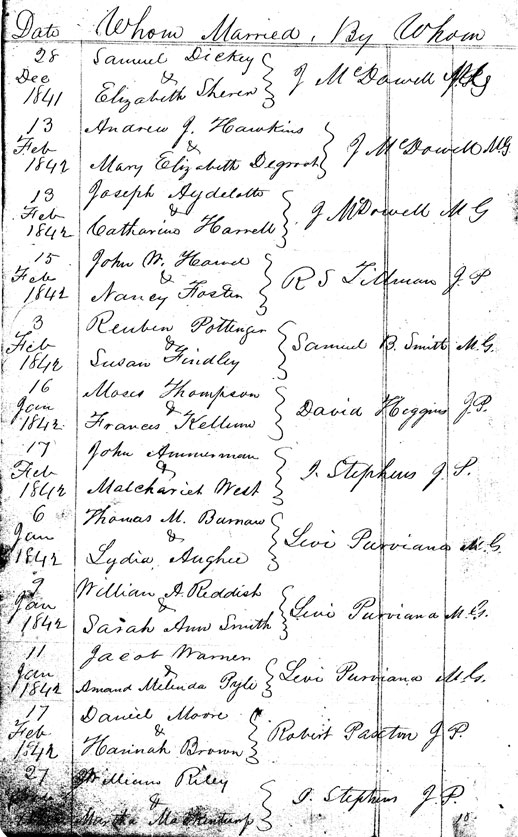 Date Whom Married, By Whom
28 Samuel Dickey
Dec & J McDowell
1841 Elizabeth Sheren
13 Andrew J. Hawkins
Feb & J McDowell MG
1842 Mary Elizabeth Degroot
13 Joseph Aydelotte
Feb & J McDowell MG
1842 Catharine Harrell
15 John W. Hawd
Feb & R S Tillman J P
1842 Nancy Foster
3 Reuben Pottenger
Feb & Samuel B. Smith M.G.
1842 Susan Findley
16 Moses Thompson
Jan & David Higgins J.P.
1842 Frances Kellum
17 John Ammerman
Feb & I. Stephens J P.
1842 West
6 Thomas M. Burnaw
Jan & Levi Purviana M.G.
1842 Lydia Aughee
9 William A Reddish
Jan & Levi Purviana M.G.
1842 Sarah Ann Smith
11 Jacob Warner
Jan & Levi Purviana M.G.
1842 Amand Melinda Pyle
17 Daniel Moore
Feb & Robert Paxton J P.
1842 Hannah Brown
27 William Riley
& I. Stephens J P.
Martha
10